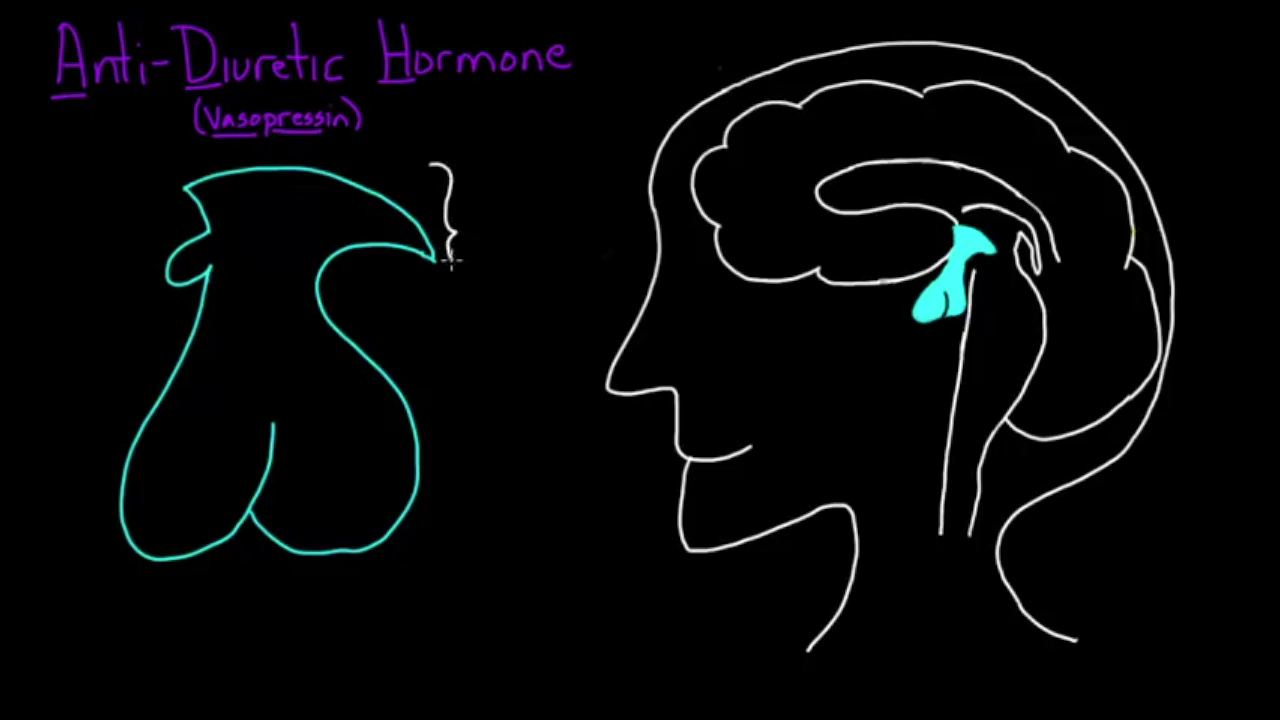 Anti-Diuretic Hormone
(Vasopressin)